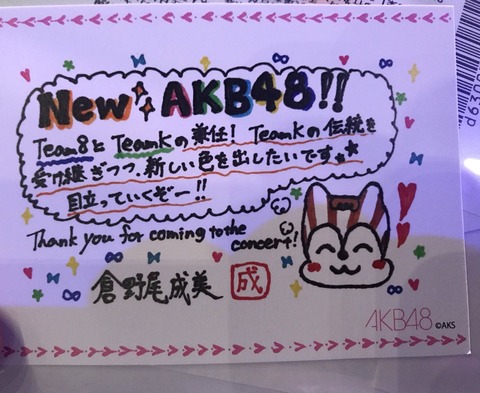 New AKB48!!
Team8とTeamKの兼任! TeamKの伝統を
受け継ぎつつ、新しい色を出したいです★★
目立っていくぞー!!
Thank you for coming to the
concert!
倉野尾成美 成
AKB48 ©AKS
d6300